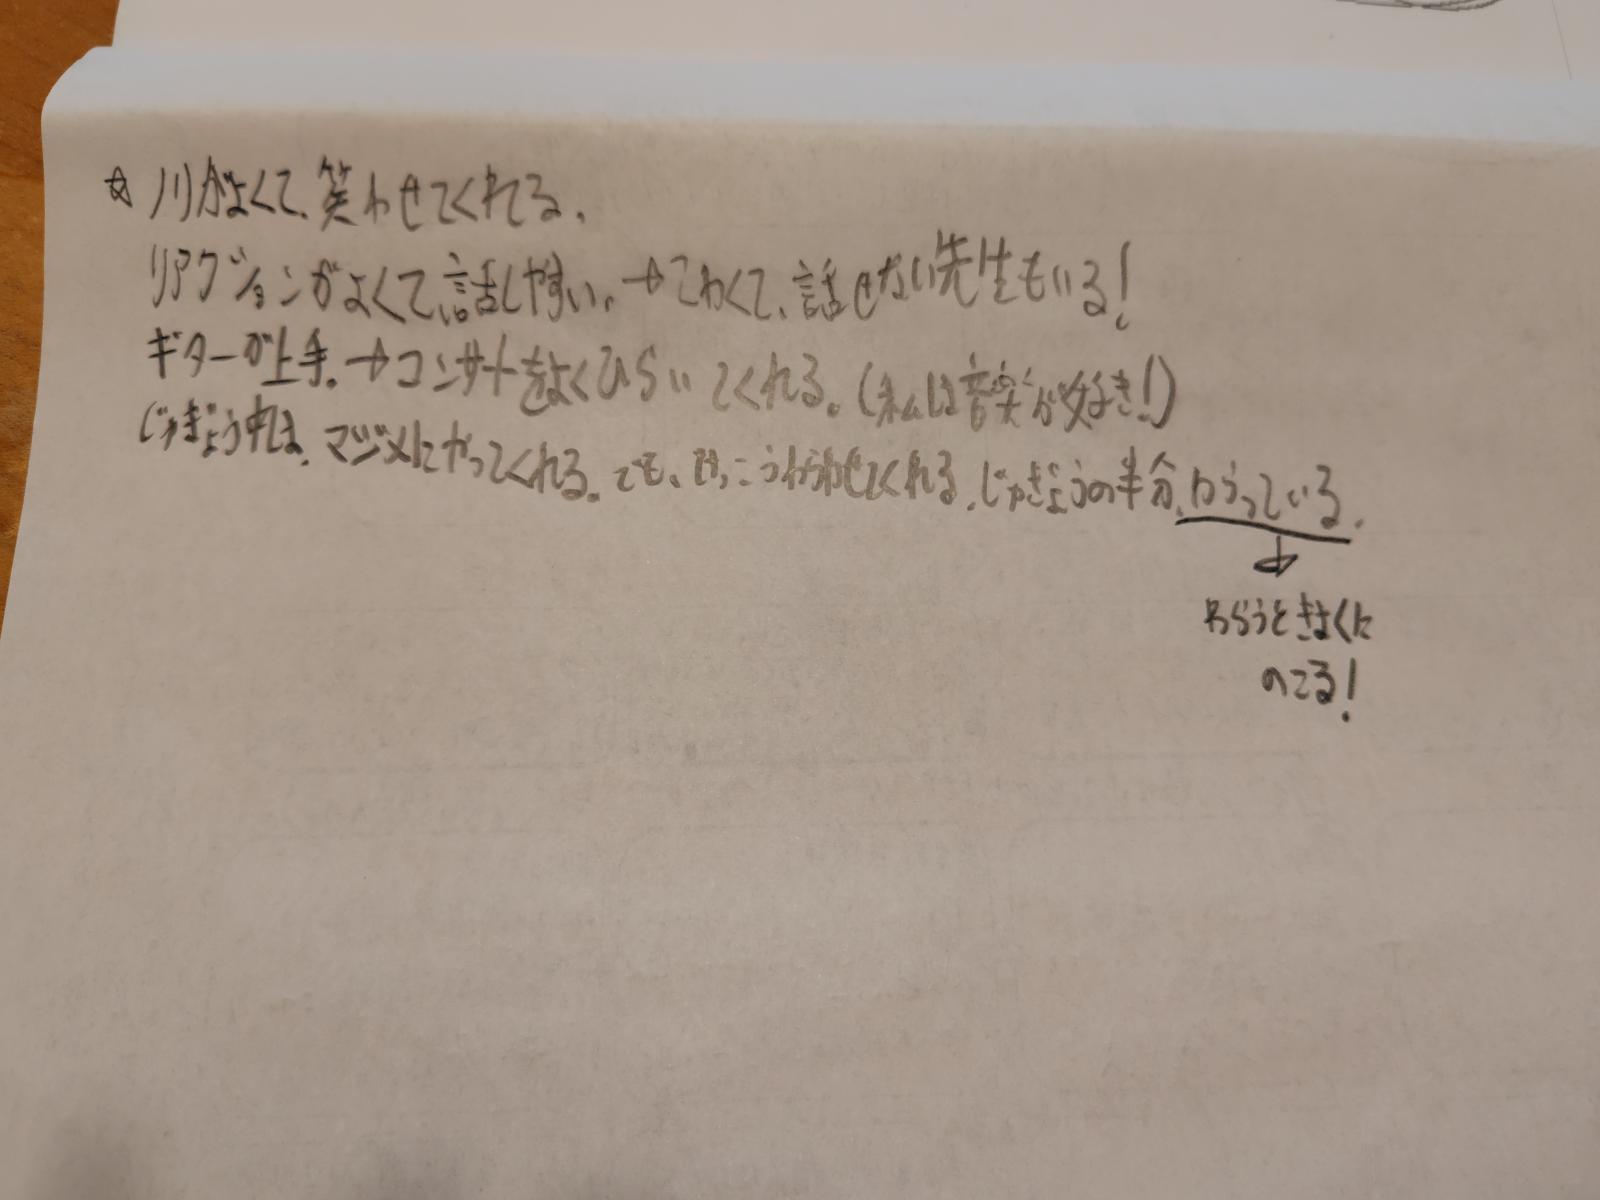 ☆ノリがよくて、笑わせてくれる。
リアクションがよくて、話しやすい。→こわくて、話せない先生もいる!
ギターが上手。→コンサートをよくひらいてくれる。(私は音楽が好き!)
じゅぎょう中は、マジメにやってくれる。でも、けっこうわらわせてくれる。じゅぎょうの半分、わらっている。
わらうときおくに
のこる!